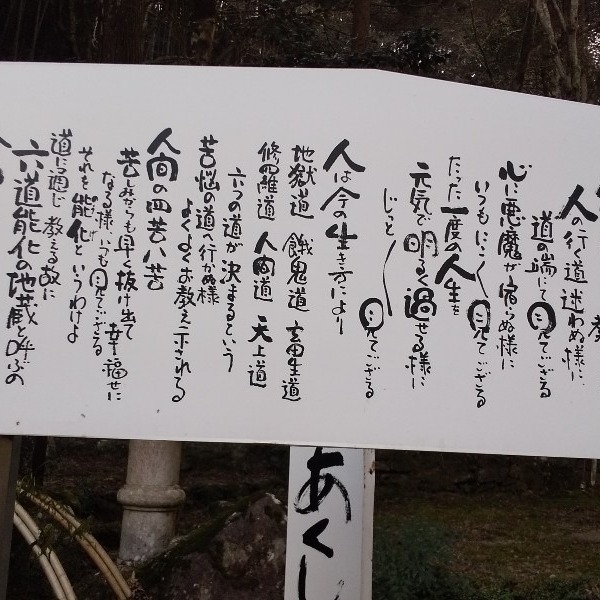 人の行く道迷わぬ様に
道の端にて見てござる
心に悪魔が宿らぬ様に
いつもにこ〱見てござる
たった一度の人生を
元気で明るく過せる様に
じっと
見てござる
人は今の生き方により
地獄道 餓鬼道 畜生道
修羅道 人間道 天上道
六つの道が決まるという
苦悩の道へ行かぬ様
よくよくお教え示される
人間の四苦八苦
苦しみからも早く抜け出て
幸福せに
なる様いつも見てござる
それを能化というわけよ
道に通じ教える故に
六道能化の地蔵と呼ぶの
あくし